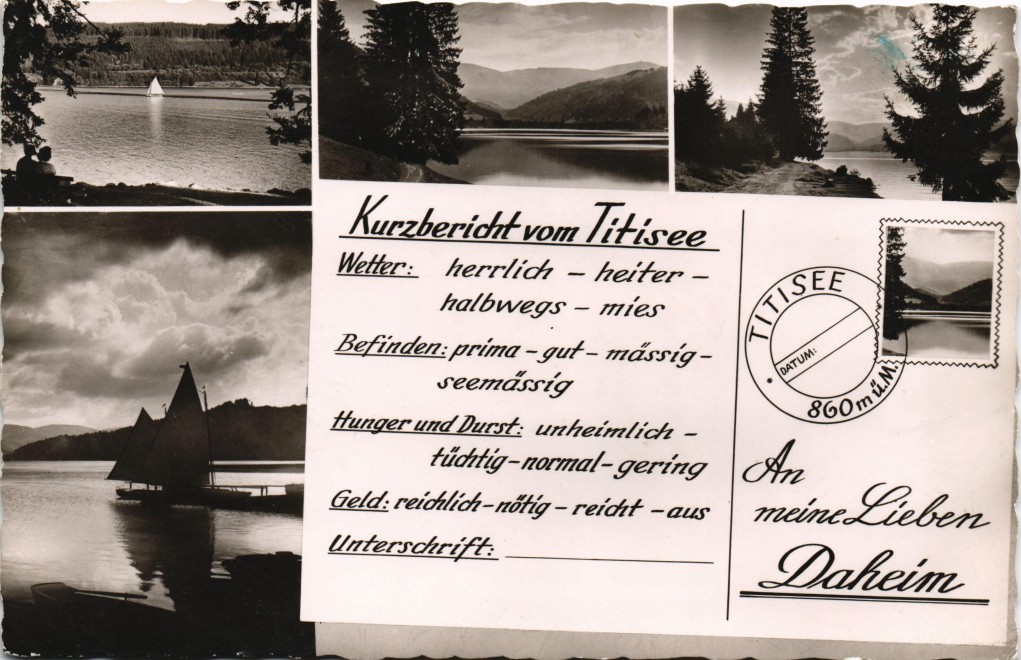 Kurzbericht vom Titisee
Wetter: herrlich – heiter –
halbwegs – mies
Befinden: prima – gut – mässig –
seemässig
Hunger und Durst: unheimlich –
tüchtig – normal – gering
Geld: reichlich – nötig – reicht – aus
Unterschrift:
TITISEE
DATUM:
860 m ü. M.
An
meine Lieben
Daheim